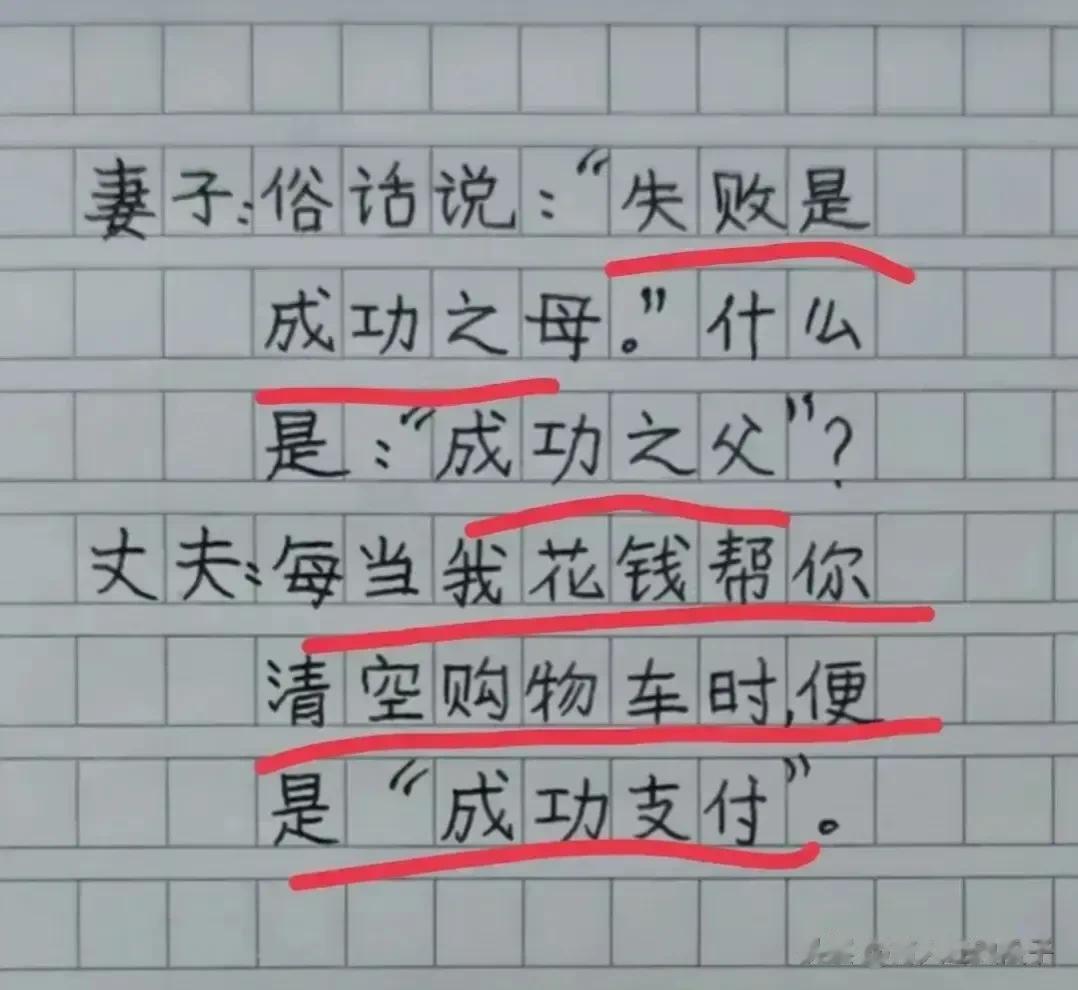 妻子:俗话说:“失败是
成功之母。”什么
是:“成功之父”?
丈夫:每当我花钱帮你
清空购物车时,便
是“成功支付”。